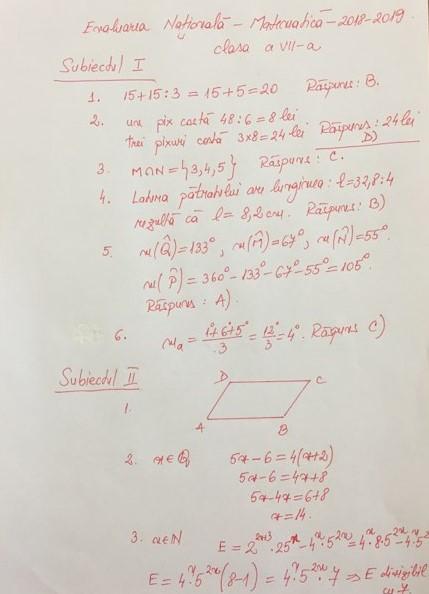 Evaluarea Națională - Matematică - 2018-2019.
clasa a VII-a
Subiectul I
1. 15+15:3 = 15+5 = 20 Răspuns: B.
2. un pix costă 48:6 = 8 lei
trei pixuri costă 3×8 = 24 lei Răspuns: 24 lei
D)
3. M∩N = {3,4,5} Răspuns: C.
4. Latura pătratului are lungimea: l = 32,8:4
rezultă că l = 8,2 cm. Răspuns: B)
5. m(Q̂) = 133°, m(M̂) = 67°, m(N̂) = 55°
m(P̂) = 360° - 133° - 67° - 55° = 105°.
Răspuns: A).
6. m_a = (1°+6°+5°)/3 = 12°/3 = 4°. Răspuns C)
Subiectul II
D C
1.
A B
2. x∈Q 5x-6 = 4(x+2)
5x-6 = 4x+8
5x-4x = 6+8
x = 14.
3. x∈N E = 2^(2x+3) · 25^x - 4^x · 5^(2x) = 4^x · 8 · 5^(2x) - 4^x · 5^2
E = 4^x · 5^(2x) (8-1) = 4^x · 5^(2x) · 7 ⇒ E divizibil
cu 7.